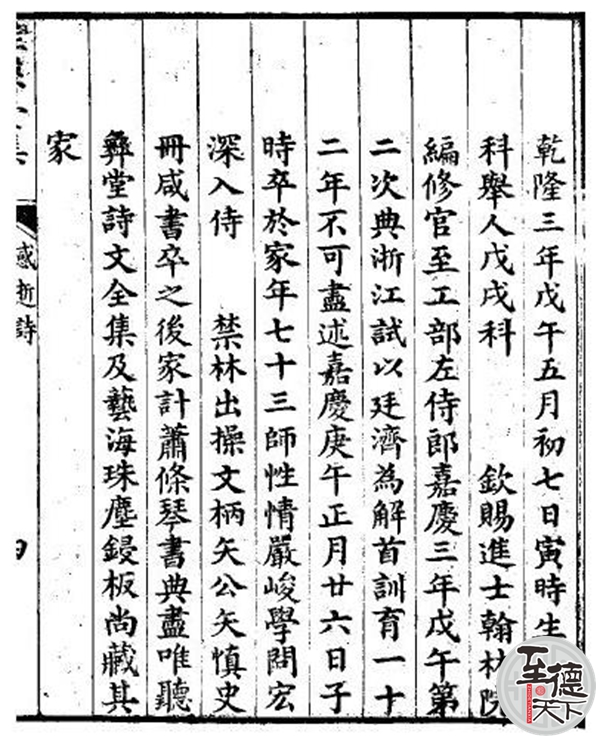 乾隆三年戊午五月初七日寅時生
科舉人戊戌科　欽賜進士翰林院
編修官至工部左侍郎嘉慶三年戊午第
二次典浙江試以廷濟為解首訓育一十
二年不可盡述嘉慶庚午正月廿六日子
時卒於家年七十三師性情嚴峻學問宏
深入侍　禁林出操文柄矢公矢慎史
冊咸書卒之後家計蕭條琴書典盡唯聽
彝堂詩文全集及藝海珠塵鋟板尚藏其
家
感逝詩
四
至德天下